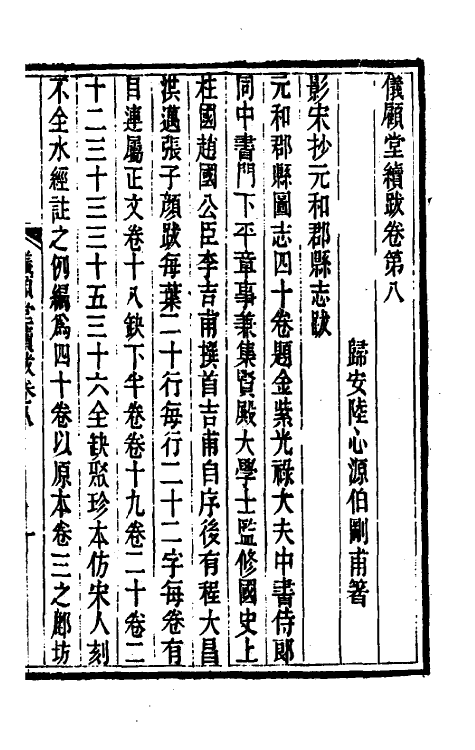 儀顧堂續跋卷第八
歸安陸心源伯剛甫著
影宋抄元和郡縣志跋
元和郡縣圖志四十卷題金紫光祿大夫中書侍郎
同中書門下平章事兼集賢殿大學士監修國史上
柱國趙國公臣李吉甫撰首吉甫自序後有程大昌
洪邁張子顏跋每葉二十行每行二十二字每卷有
目連屬正文卷十八缺下半卷卷十九卷二十卷二
十二三十三三十五三十六全缺聚珍本仿宋人刻
不全水經註之例編爲四十卷以原本卷三之鄜坊
儀顧堂續跋卷八
一